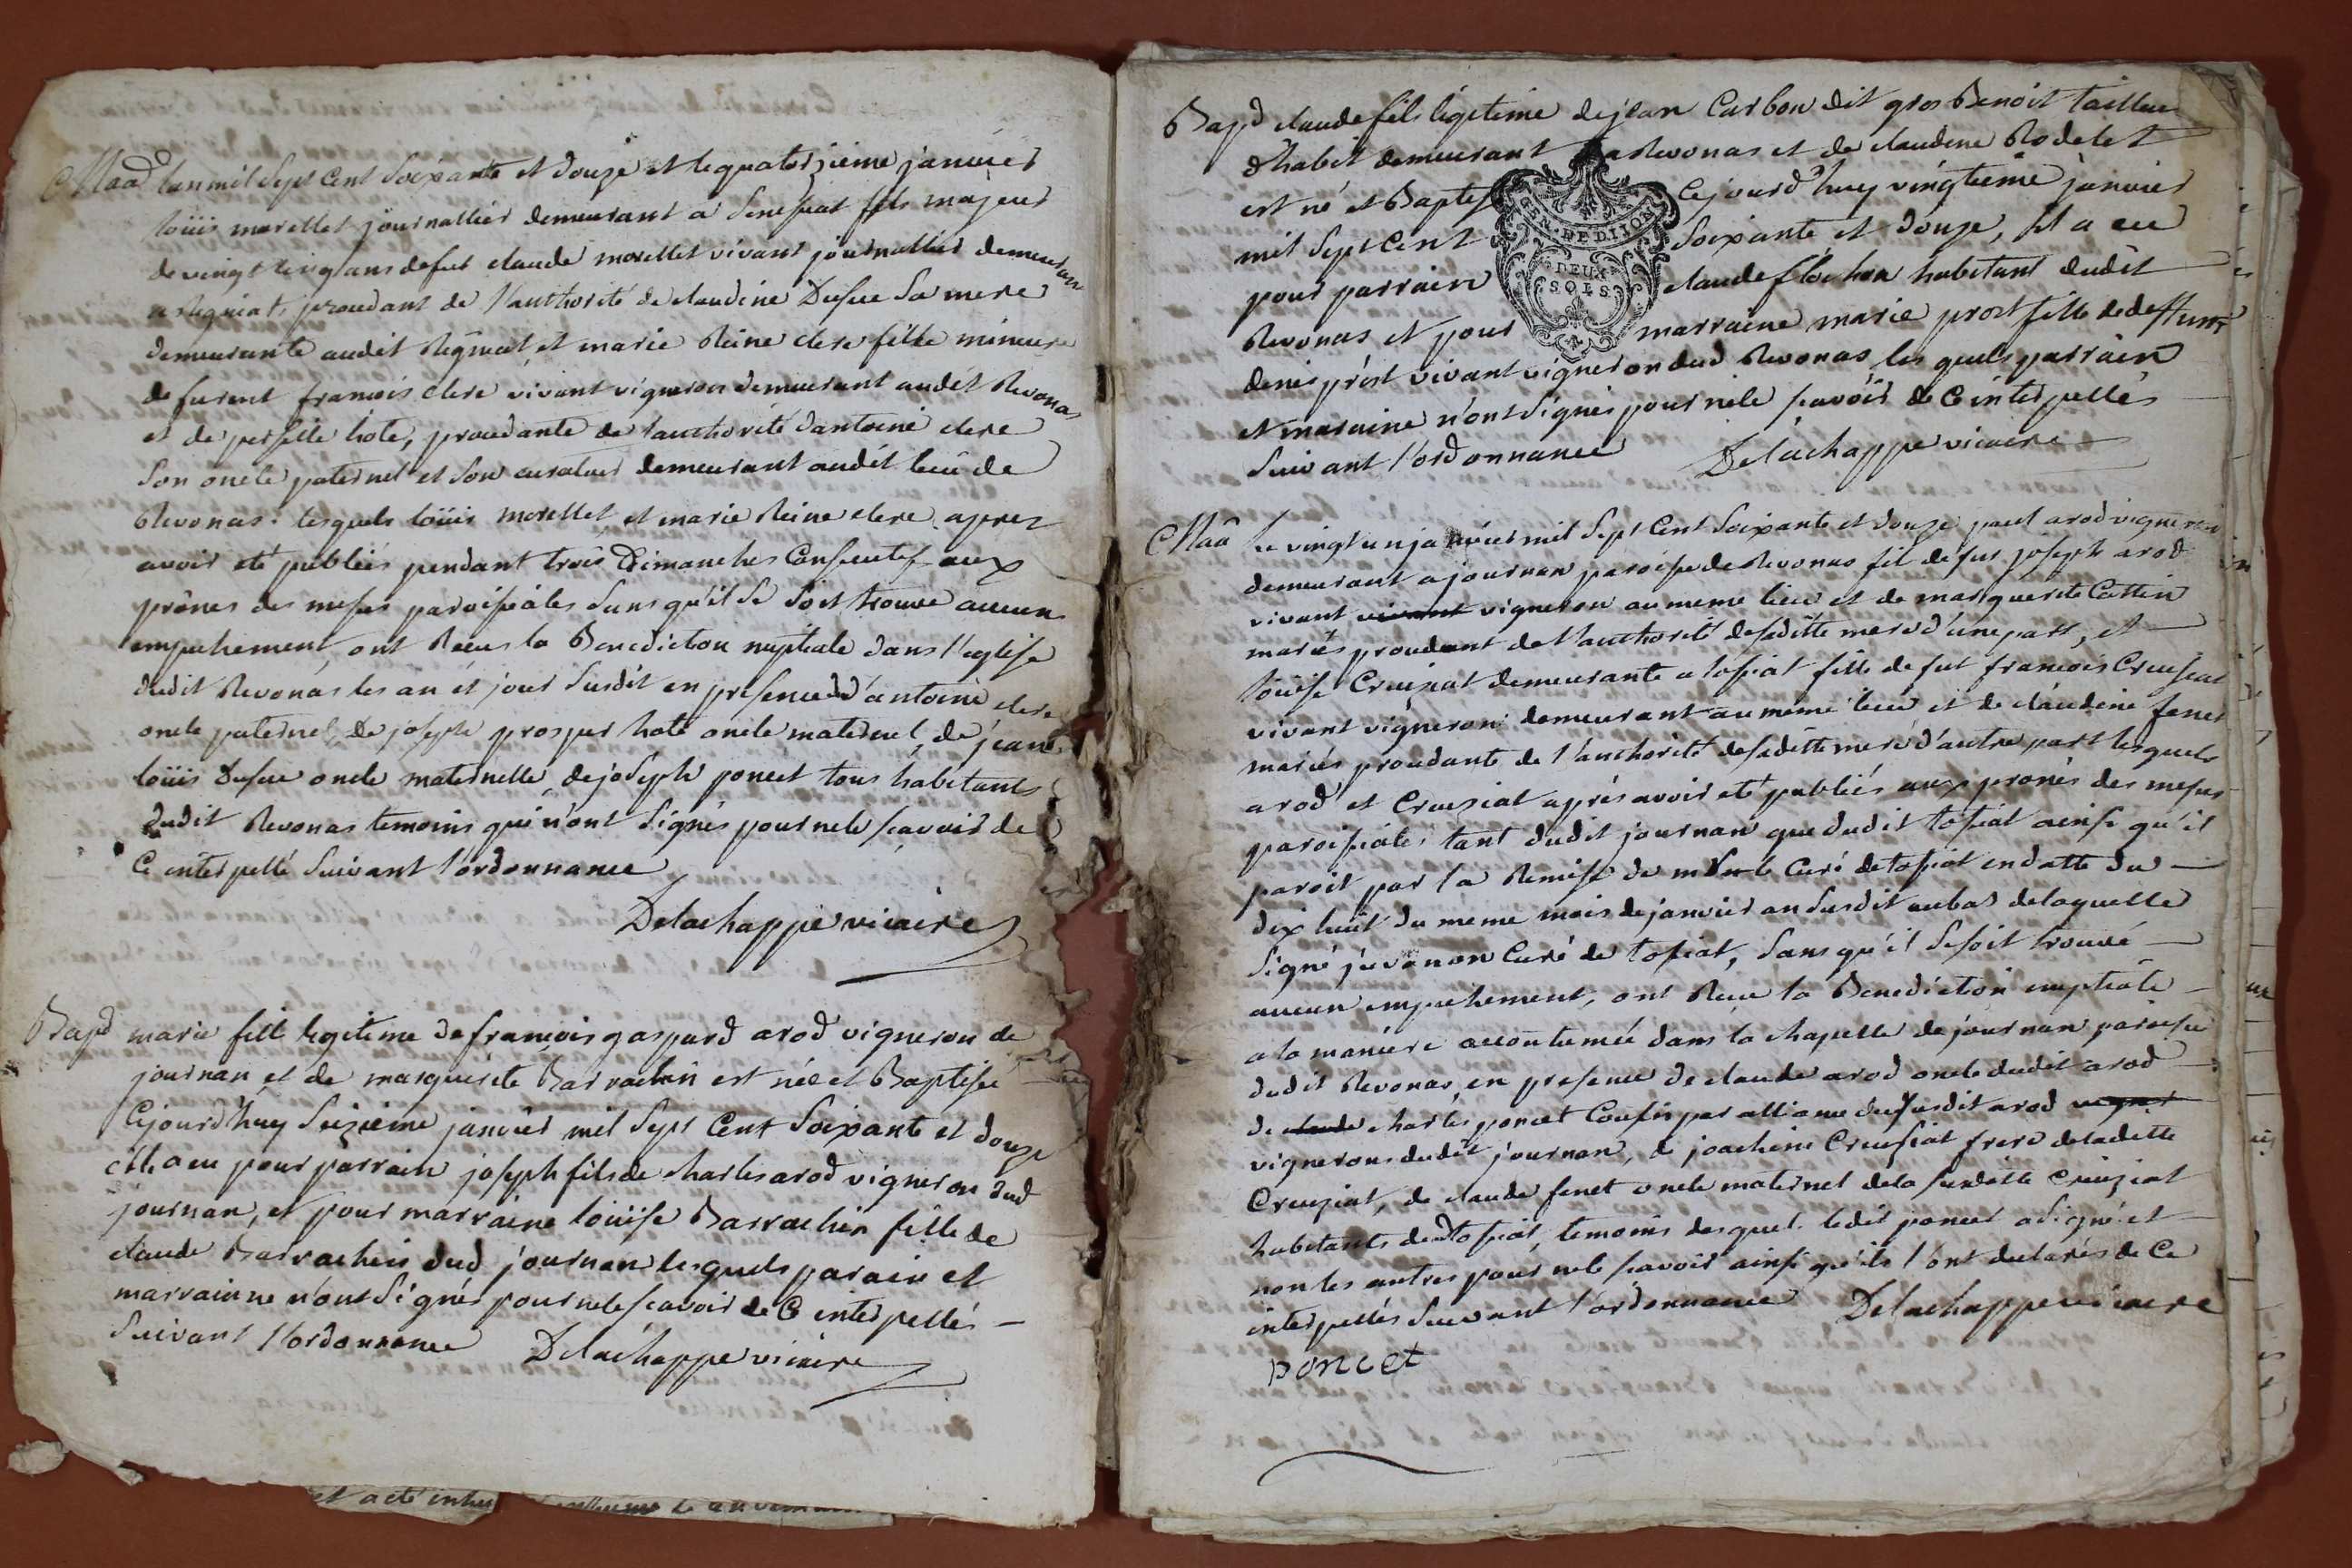 Maa͞d lan mil sept cent soixante et douze et le quatorzieme janvier
loüis morellet journallier demeurant a senessiat fils majeur
de vingt cinq ans de fut claude morellet vivant journallier demeurant
a Rigniat, procedant de l'authorité de claudine Dufue sa mere
demeurante audit Rigniat et marie Reine clere fille mineure
de furent francois clere vivant vigneron demeurant audit Revonas
et de perselle hote, procedante de l'authorité d'antoine clere
son oncle paternel et son curateur demeurant audit lieu de
Revonas: lesquels loüis morellet et marie Reine clere aprez
avoir eté publiés pendant trois Dimanches Consecutif aux
prônes des messes paroissiales sans qu'il se soit trouvé aucun
empechement, ont Recus la Benediction nuptiale dans l'eglise
dudit Revonas les an et jour susdit en presence d'antoine clere
oncle paternel, de joseph prosper hote oncle maternel, de jean
loüis Dufue oncle maternelle, de joseph poncet tous habitants
dudit Revonas temoins qui n'ont signés pour ne le scavoir de
Ce interpellé suivant l'ordonnance
Delachappe vicaire
Bap͞d marie fille legitime de francois gaspard arod vigneron de
journan et de marguerite Barrachin est née et Baptisée
Cejourd'huy seizieme janvier mil sept Cent soixante et douze
elle a eu pour parrain joseph fils de charles arod vigneron dud
journan, et pour marraine loüise Barrachin fille de
claude Barrachin dud journan lesquels parain et
marrainne n'ont signés pour ne le scavoir de Ce interpellés
suivant l'ordonnance Delachappe vicaire
et acte
Bap͞d claude fils legitime de jean Carbon dit gros Benoit tailleur
d'habit demeurant a Revonas et de claudine Rodelet
est né et Baptisé Cejourd'huy vingtieme janvier
mil sept Cent soixante et douze, il a eu
pour parrain claude flochon habitant dudit
Revonas et pour marraine marie prost fille de deffunt
denis prost vivant vigneron dud Revonas, les quels parrain
et maraine n'ont signés pour ne le scavoir de Ce interpellés
suivant l'ordonnance Delachappe vicaire
GEN. DE DIJON
DEUX
SOLS
Maa͞ le vingt un janvier mil sept Cent soixante et douze paul arod vigneron
demeurant a journan paroisse de Revonas fil de fut joseph arod
vivant vivant vigneron au meme lieu et de marguerite Cattin
mariés procedant de l'authorité de saditte mere d'une part, et
loüise Creuziat demeurante a tossiat fille de fut francois Creuziat
vivant vigneron demeurant au même lieu et de claudine fenet
mariés procedante de l'authorité de saditte mere d'autre part lesquels
arod et Creuziat aprés avoir eté publiés aux prones des messes
paroissiales tant dudit journan que dudit tossiat ainsi qu'il
paroit par la Remise de mr le Curé de tossiat en datte du
dix huit du meme mois de janvier an susdit au bas de laquelle
signé juvanon Curé de tossiat, sans qu'il se soit trouvé
aucun empechement, ont Recu la Benediction nuptiale
a la maniere accoutumée dans la chapelle de journan paroisse
dudit Revonas en presence de claude arod oncle dudit arod
de claude charles poncet Cousin par alliance du susdit arod vigner
vignerons dudit journan, de joachim Creuziat frere de laditte
Creuziat, de claude fenet oncle maternel de la susditte Creuziat
habitants de tossiat, temoins desquel ledit poncet a signé et
non les autres pour ne le scavoir ainsi qu'ils l'ont declarés de Ce
interpellés suivant l'ordonnance Delachappe vicaire
poncet